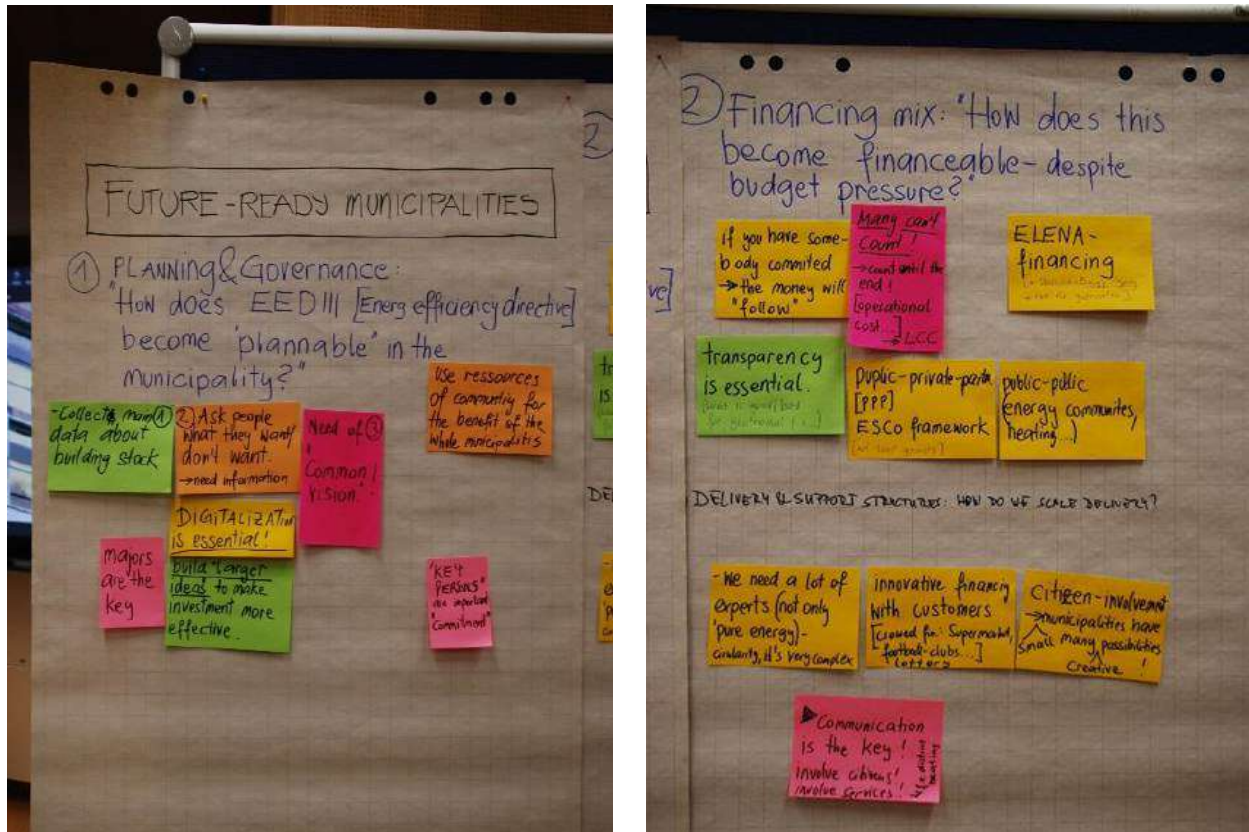 FUTURE-READY MUNICIPALITIES
1 PLANNING & Governance:
"How does EED III [Energ efficiency directive]
become "plannable" in the
municipality?"
use ressources
of community for
the benefit of the
whole municipalitis
-Collect main 1
data about
building stock
2) Ask people
what they want/
don't want.
→ need information
Need of 3
"Common
Vision"!
DIGITALIZATION
is essential!
majors
are the
key
build larger
ideas to make
investment more
effective.
"KEY
PERSONS"
are important
"Commitment"
2) Financing mix: "How does this
become financeable - despite
budget pressure?"
if you have some-
body commited
→ the money will
"follow"
Many can't
count!
→ count until the
end!
[operational
cost...]
→ LCC
ELENA-
financing
transparency
is essential.
puplic-private-partn.
[PPP]
ESCo framework
public-public
(energy communites,
heating...)
DELIVERY & SUPPORT STRUCTURES: HOW DO WE SCALE DELIVERY?
-We need a lot of
experts (not only
'pure energy)-
cirularity, it's very complex
innovative financing
with customers
[crowed fin.: Supermarket,
football-clubs...]
Lottery
Citizen-involvement
→ municipalities have
small many possibilities
creative !
Communication
is the key!
involve citizens!
involve services!
heating